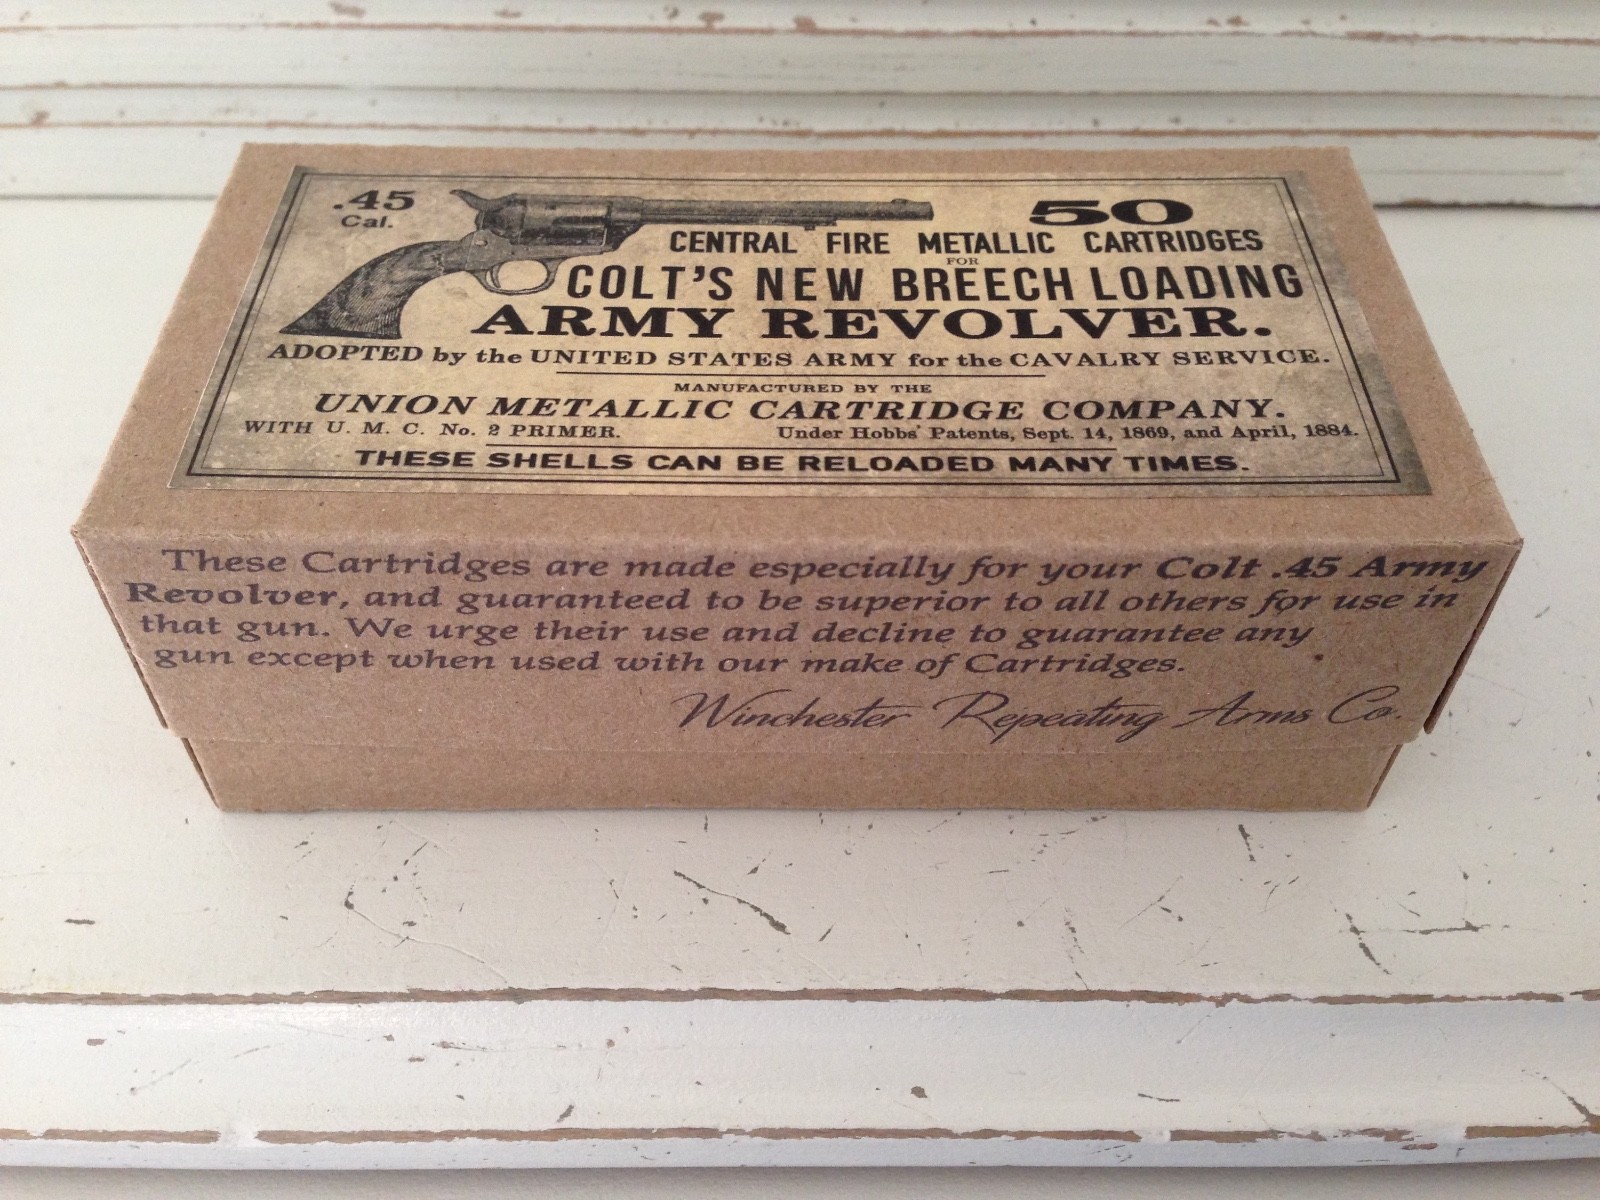 .45
Cal.
50
CENTRAL FIRE METALLIC CARTRIDGES
FOR
COLT'S NEW BREECH LOADING
ARMY REVOLVER.
ADOPTED by the UNITED STATES ARMY for the CAVALRY SERVICE.
MANUFACTURED BY THE
UNION METALLIC CARTRIDGE COMPANY.
WITH U. M. C. No. 2 PRIMER.
Under Hobbs' Patents, Sept. 14, 1869, and April, 1884.
THESE SHELLS CAN BE RELOADED MANY TIMES.
These Cartridges are made especially for your Colt .45 Army
Revolver, and guaranteed to be superior to all others for use in
that gun. We urge their use and decline to guarantee any
gun except when used with our make of Cartridges.
Winchester Repeating Arms Co.